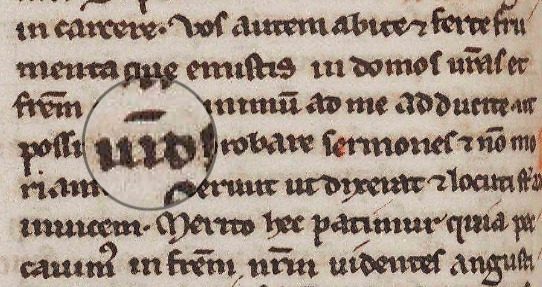 in carcere. Vos autem abite ⁊ ferte fru
menta que emistis in domos vr̃as et
frẽm minimũ ad me adducite ut
possi vid probare sermones ⁊ nõ mo
riam fecerunt ut dixerat ⁊ locuti st̃ ad
inuicem. Merito hec patimur quia pec
cauimꝰ in frẽm nr̃m uidentes angusti